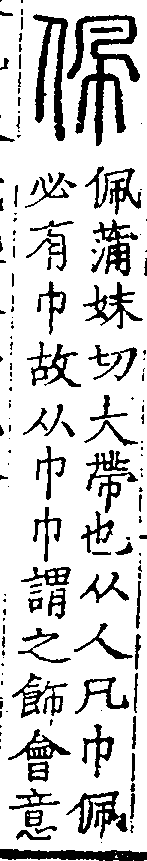 佩
佩蒲妹切大帶也从人凡巾佩
必有巾故从巾巾謂之飾會意